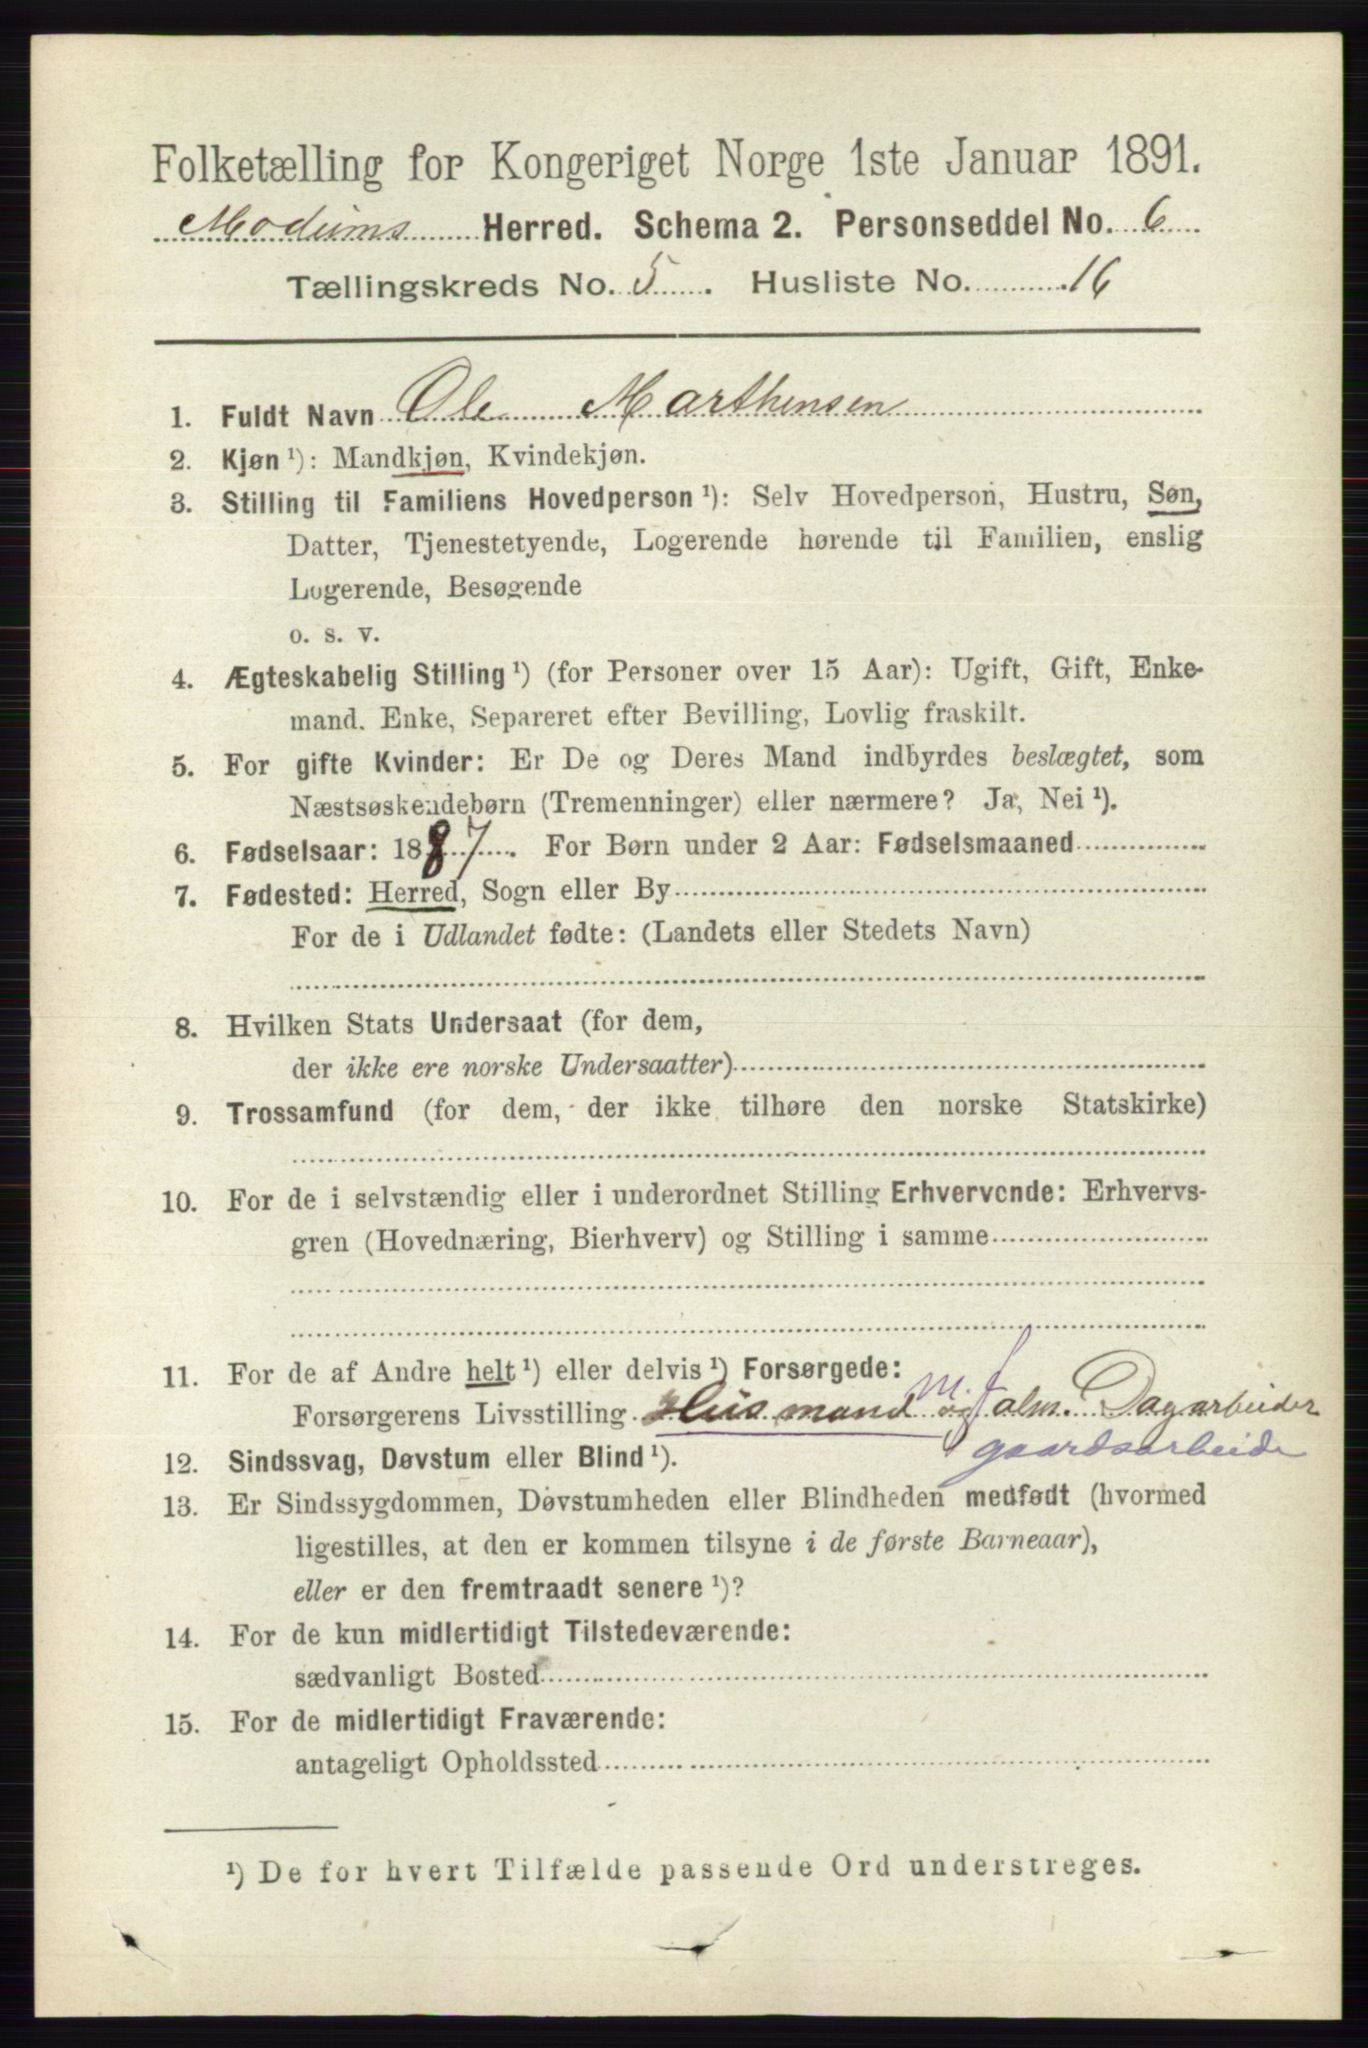 Folketælling for Kongeriget Norge 1ste Januar 1891.
Modums Herred. Schema 2. Personseddel No. 6
Tællingskreds No. 5. Husliste No. 16
1. Fuldt Navn Ole Marthinsen
2. Kjøn ¹): Mandkjøn, Kvindekjøn.
3. Stilling til Familiens Hovedperson ¹): Selv Hovedperson, Hustru, Søn,
Datter, Tjenestetyende, Logerende hørende til Familien, enslig
Logerende, Besøgende
o. s. v.
4. Ægteskabelig Stilling ¹) (for Personer over 15 Aar): Ugift, Gift, Enke-
mand. Enke, Separeret efter Bevilling, Lovlig fraskilt.
5. For gifte Kvinder: Er De og Deres Mand indbyrdes beslægtet, som
Næstsøskendebørn (Tremenninger) eller nærmere? Ja, Nei ¹).
6. Fødselsaar: 1887. For Børn under 2 Aar: Fødselsmaaned
7. Fødested: Herred, Sogn eller By
For de i Udlandet fødte: (Landets eller Stedets Navn)
8. Hvilken Stats Undersaat (for dem,
der ikke ere norske Undersaatter)
9. Trossamfund (for dem, der ikke tilhøre den norske Statskirke)
10. For de i selvstændig eller i underordnet Stilling Erhvervende: Erhvervs-
gren (Hovednæring, Bierhverv) og Stilling i samme
11. For de af Andre helt ¹) eller delvis ¹) Forsørgede: m. J
Forsørgerens Livsstilling Husmand og alm. Dagarbeider
gaardsarbeide
12. Sindssvag, Døvstum eller Blind ¹).
13. Er Sindssygdommen, Døvstumheden eller Blindheden medfødt (hvormed
ligestilles, at den er kommen tilsyne i de første Barneaar),
eller er den fremtraadt senere ¹)?
14. For de kun midlertidigt Tilstedeværende:
sædvanligt Bosted
15. For de midlertidigt Fraværende:
antageligt Opholdssted
¹) De for hvert Tilfælde passende Ord understreges.